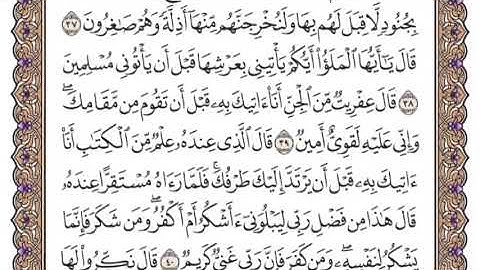 بِجُنُودٍ لَّا قِبَلَ لَهُم بِهَا وَلَنُخْرِجَنَّهُم مِّنْهَآ أَذِلَّةً وَهُمْ صَٰغِرُونَ ٣٧
قَالَ يَٰٓأَيُّهَا ٱلْمَلَؤُا۟ أَيُّكُمْ يَأْتِينِى بِعَرْشِهَا قَبْلَ أَن يَأْتُونِى مُسْلِمِينَ
٣٨ قَالَ عِفْرِيتٌ مِّنَ ٱلْجِنِّ أَنَا۠ ءَاتِيكَ بِهِۦ قَبْلَ أَن تَقُومَ مِن مَّقَامِكَ ۖ
وَإِنِّى عَلَيْهِ لَقَوِىٌّ أَمِينٌ ٣٩ قَالَ ٱلَّذِى عِندَهُۥ عِلْمٌ مِّنَ ٱلْكِتَٰبِ أَنَا۠
ءَاتِيكَ بِهِۦ قَبْلَ أَن يَرْتَدَّ إِلَيْكَ طَرْفُكَ ۚ فَلَمَّا رَءَاهُ مُسْتَقِرًّا عِندَهُۥ
قَالَ هَٰذَا مِن فَضْلِ رَبِّى لِيَبْلُوَنِىٓ ءَأَشْكُرُ أَمْ أَكْفُرُ ۖ وَمَن شَكَرَ فَإِنَّمَا
يَشْكُرُ لِنَفْسِهِۦ ۖ وَمَن كَفَرَ فَإِنَّ رَبِّى غَنِىٌّ كَرِيمٌ ٤٠ قَالَ نَكِّرُوا۟ لَهَا